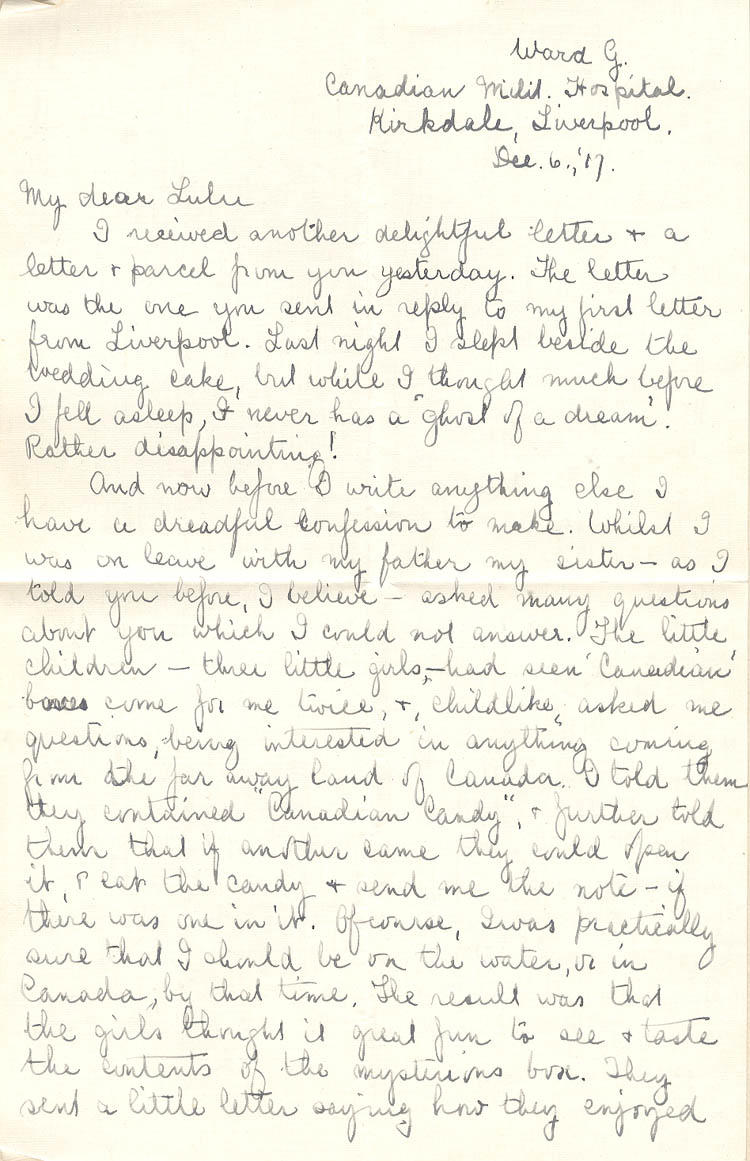 Ward G.
Canadian Milit. Hospital.
Kirkdale, Liverpool.
Dec. 6., '17.
My dear Lulu
I received another delightful letter + a
letter + parcel from you yesterday. The letter
was the one you sent in reply to my first letter
from Liverpool. Last night I slept beside the
wedding cake, but while I thought much before
I fell asleep, I never has a "ghost of a dream".
Rather disappointing!
And now before I write anything else I
have a dreadful confession to make. Whilst I
was on leave with my father my sister – as I
told you before, I believe – asked many questions
about you which I could not answer. The little
children – three little girls, – had seen 'Canadian'
boxes come for me twice, +, childlike, asked me
questions, being interested in anything coming
from the far away land of Canada. I told them
they contained "Canadian Candy", + further told
them that if another came they could open
it, + eat the candy + send me the note – if
there was one in it. Ofcourse, I was practically
sure that I should be on the water, or in
Canada, by that time. The result was that
the girls thought it great fun to see + taste
the contents of the mysterious box. They
sent a little letter saying how they enjoyed